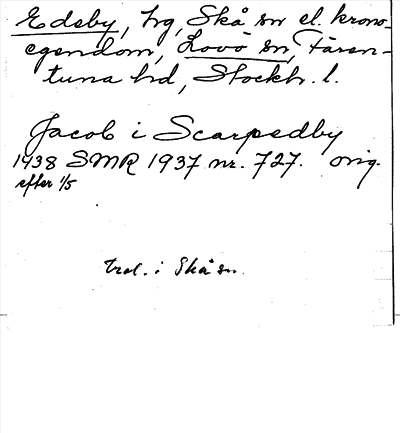 Edeby, hg, Skå sn el. krono-
egendom, Lovö sn, Fären-
tuna hd, Stockh. l.
Jacob i Scarpedby
1438 SMR 1937 nr. 727. orig.
efter 1/5
trol. i Skå sn.